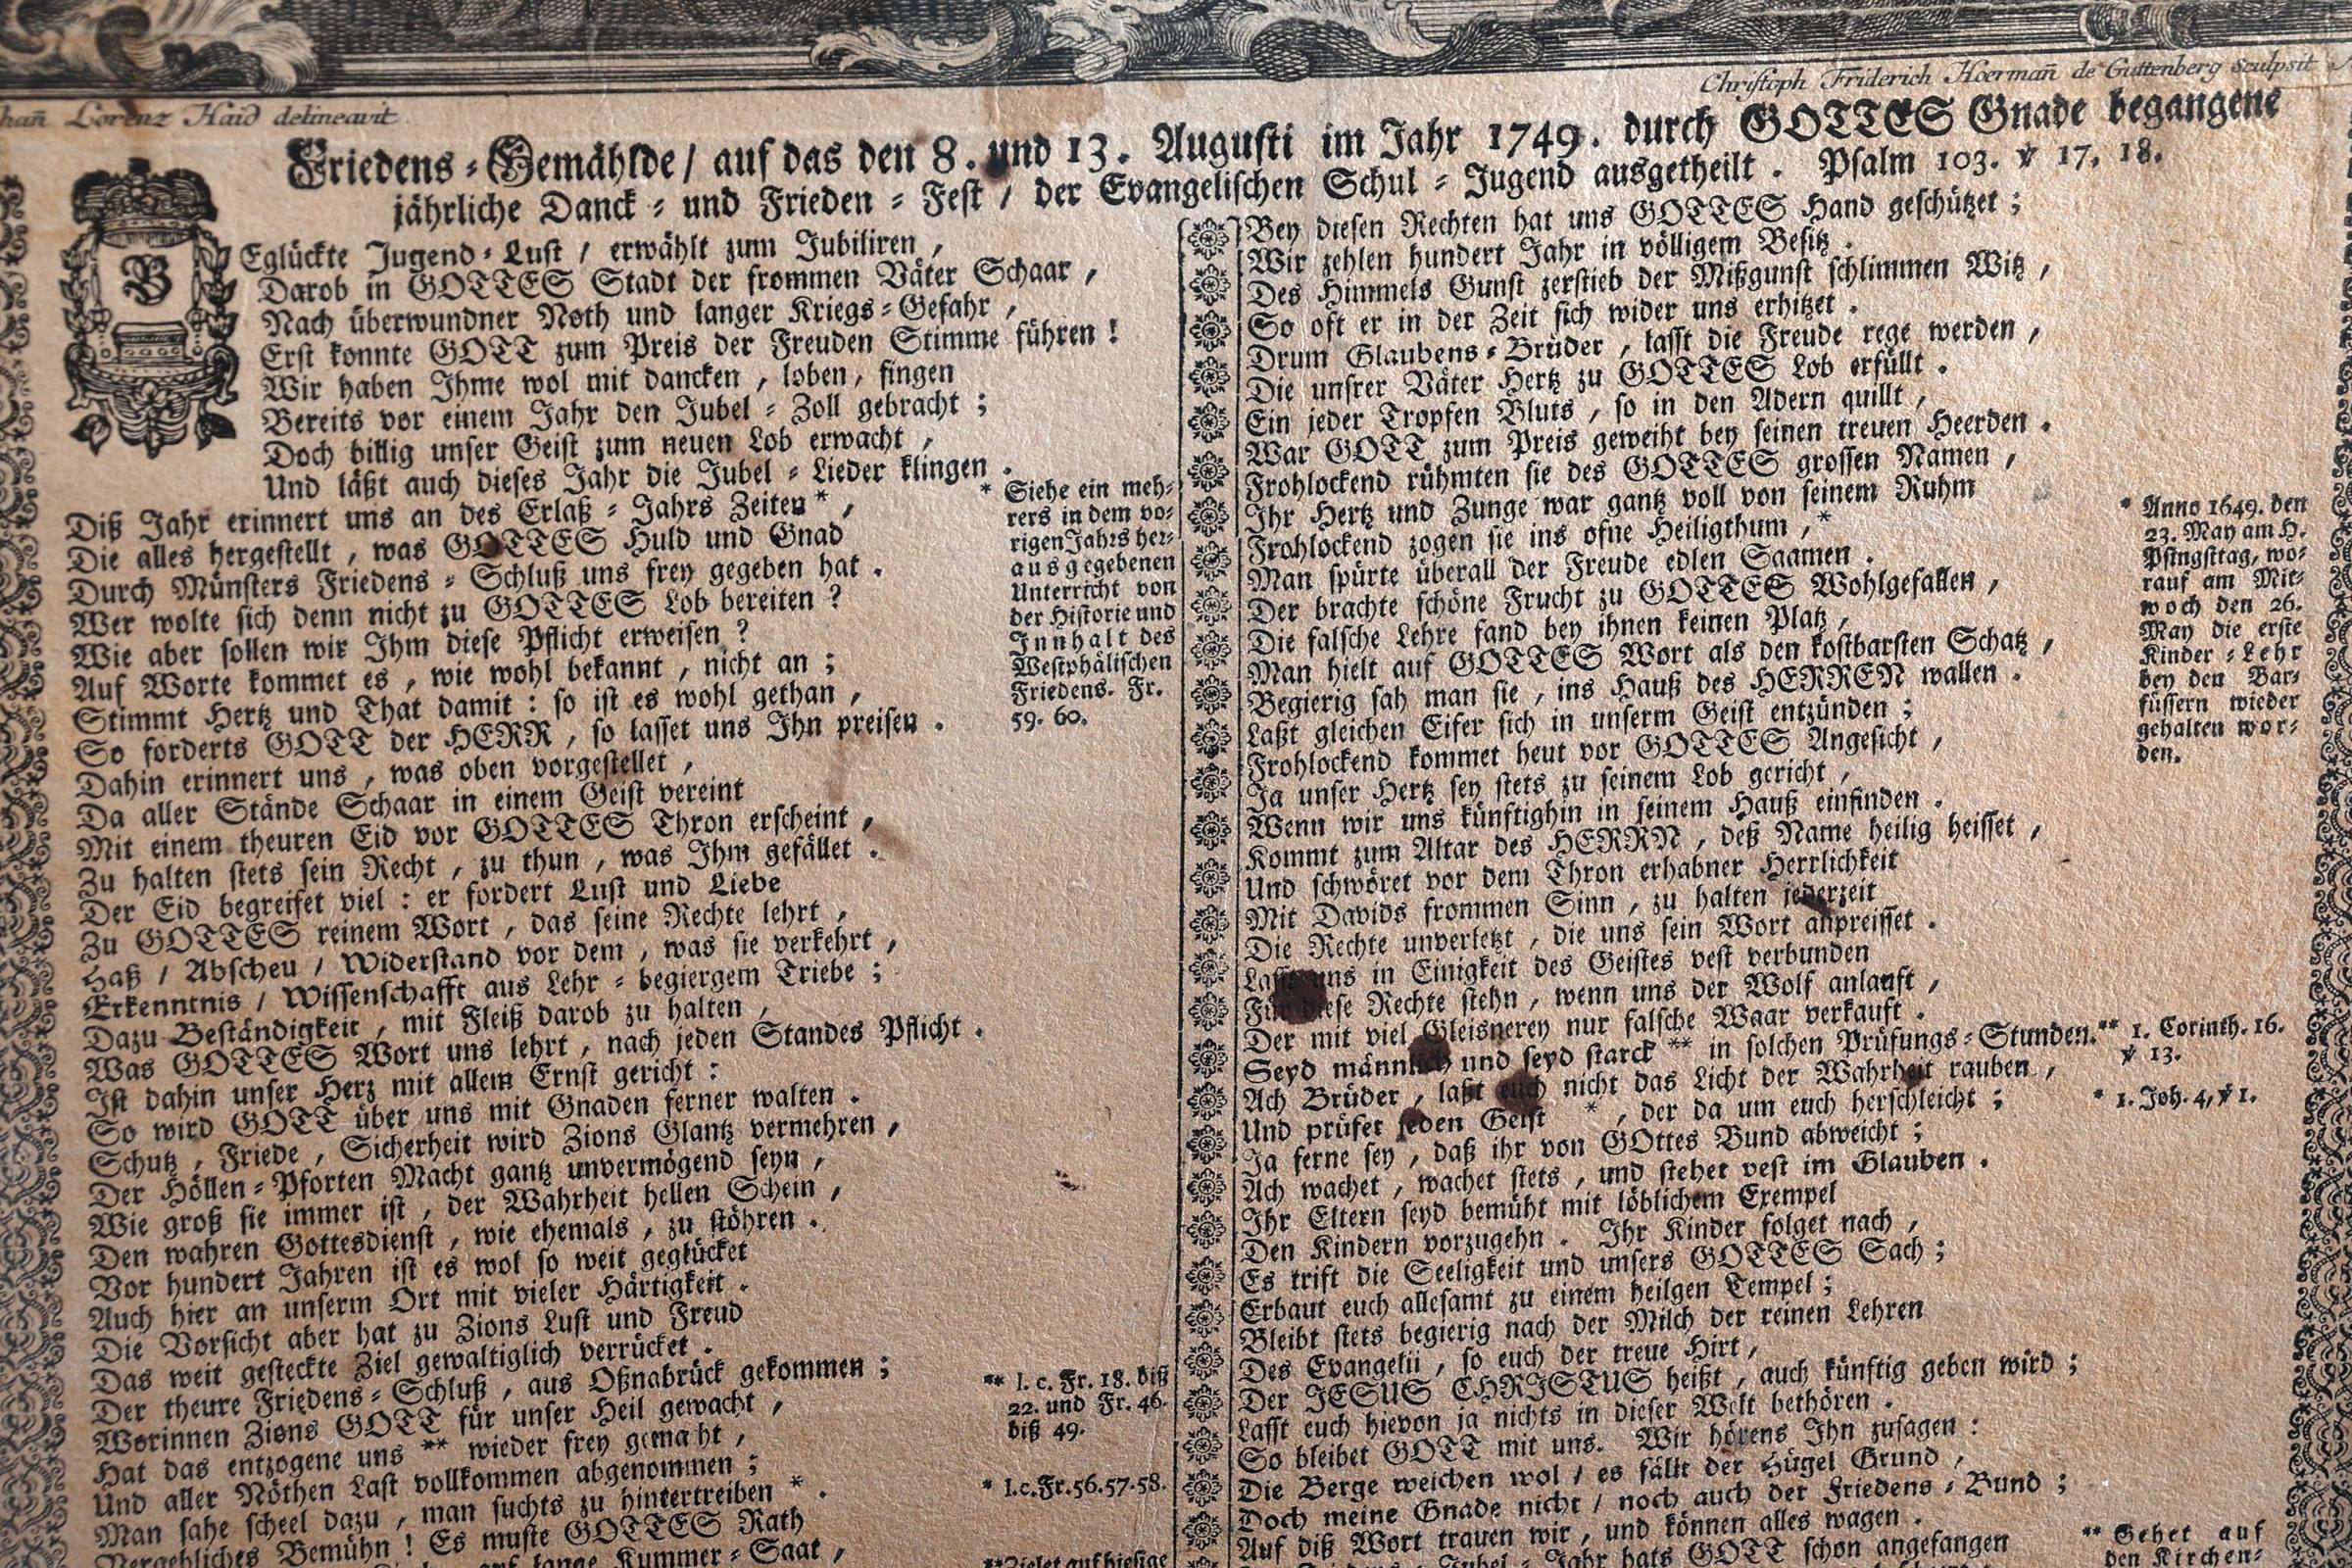 hañ Lorenz Haid delineavit.
Christoph Friderich Hoermañ de Guttenberg Sculpsit
Friedens-Gemählde / auf das den 8. und 13. Augusti im Jahr 1749. durch GOTTES Gnade begangene
jährliche Danck- und Frieden-Fest / der Evangelischen Schul-Jugend ausgetheilt. Psalm 103. ℣ 17. 18.
BEglückte Jugend-Lust / erwählt zum Jubiliren,
Darob in GOTTES Stadt der frommen Väter Schaar,
Nach überwundner Noth und langer Kriegs-Gefahr,
Erst konnte GOTT zum Preis der Freuden Stimme führen!
Wir haben Ihme wol mit dancken, loben, singen
Bereits vor einem Jahr den Jubel-Zoll gebracht;
Doch billig unser Geist zum neuen Lob erwacht,
Und läßt auch dieses Jahr die Jubel-Lieder klingen.
Diß Jahr erinnert uns an des Erlaß-Jahrs Zeiten*,
Die alles hergestellt, was GOTTES Huld und Gnad
Durch Münsters Friedens-Schluß uns frey gegeben hat.
Wer wolte sich denn nicht zu GOTTES Lob bereiten?
Wie aber sollen wir Ihm diese Pflicht erweisen?
Auf Worte kommet es, wie wohl bekannt, nicht an;
Stimmt Hertz und That damit: so ist es wohl gethan,
So forderts GOTT der HERR, so lasset uns Ihn preisen.
Dahin erinnert uns, was oben vorgestellet,
Da aller Stände Schaar in einem Geist vereint
Mit einem theuren Eid vor GOTTES Thron erscheint,
Zu halten stets sein Recht, zu thun, was Ihm gefället.
Der Eid begreifet viel: er fordert Lust und Liebe
Zu GOTTES reinem Wort, das seine Rechte lehrt,
Haß / Abscheu / Widerstand vor dem, was sie verkehrt,
Erkenntnis / Wissenschafft aus Lehr-begiergem Triebe;
Dazu Beständigkeit, mit Fleiß darob zu halten,
Was GOTTES Wort uns lehrt, nach jeden Standes Pflicht.
Ist dahin unser Herz mit allem Ernst gericht:
So wird GOTT über uns mit Gnaden ferner walten.
Schutz, Friede, Sicherheit wird Zions Glantz vermehren,
Der Höllen-Pforten Macht gantz unvermögend seyn,
Wie groß sie immer ist, der Wahrheit hellen Schein,
Den wahren Gottesdienst, wie ehemals, zu stöhren.
Vor hundert Jahren ist es wol so weit geglücket
Auch hier an unserm Ort mit vieler Härtigkeit.
Die Vorsicht aber hat zu Zions Lust und Freud
Das weit gesteckte Ziel gewaltiglich verrücket.
Der theure Friedens-Schluß, aus Oßnabrück gekommen;
Worinnen Zions GOTT für unser Heil gewacht,
Hat das entzogene uns ** wieder frey gemacht,
Und aller Nöthen Last vollkommen abgenommen;
Man sahe scheel dazu, man suchts zu hintertreiben *.
Vergebliches Bemühn! Es muste GOTTES Rath
auf lange Kummer-Saat,
* Siehe ein meh-
rers in dem vo-
rigen Jahrs her-
ausgegebenen
Unterricht von
der Historie und
Innhalt des
Westphälischen
Friedens. Fr.
59. 60.
** l. c. Fr. 18. biß
22. und Fr. 46.
biß 49.
* l.c. Fr. 56. 57. 58.
** Zielet auf hiesige
Bey diesen Rechten hat uns GOTTES Hand geschützet;
Wir zehlen hundert Jahr in völligem Besitz.
Des Himmels Gunst zerstieb der Mißgunst schlimmen Witz,
So oft er in der Zeit sich wider uns erhitzet.
Drum Glaubens-Brüder, lasst die Freude rege werden,
Die unsrer Väter Hertz zu GOTTES Lob erfüllt.
Ein jeder Tropfen Bluts, so in den Adern quillt,
War GOTT zum Preis geweiht bey seinen treuen Heerden.
Frohlockend rühmten sie des GOTTES grossen Namen,
Ihr Hertz und Zunge war gantz voll von seinem Ruhm
Frohlockend zogen sie ins ofne Heiligthum,*
Man spürte überall der Freude edlen Saamen.
Der brachte schöne Frucht zu GOTTES Wohlgefallen,
Die falsche Lehre fand bey ihnen keinen Platz,
Man hielt auf GOTTES Wort als den kostbarsten Schatz,
Begierig sah man sie, ins Hauß des HERREN wallen.
Laßt gleichen Eifer sich in unserm Geist entzünden;
Frohlockend kommet heut vor GOTTES Angesicht,
Ja unser Hertz sey stets zu seinem Lob gericht,
Wenn wir uns künftighin in seinem Hauß einfinden.
Kommt zum Altar des HERRN, deß Name heilig heisset,
Und schwöret vor dem Thron erhabner Herrlichkeit
Mit Davids frommen Sinn, zu halten jederzeit
Die Rechte unverletzt, die uns sein Wort anpreisset.
Lasst uns in Einigkeit des Geistes vest verbunden
Für diese Rechte stehn, wenn uns der Wolf anlauft,
Der mit viel Gleisnerey nur falsche Waar verkauft.
Seyd männlich und seyd starck ** in solchen Prüfungs-Stunden.
Ach Brüder, laßt euch nicht das Licht der Wahrheit rauben,
Und prüfet jeden Geist *, der da um euch herschleicht;
Ja ferne sey, daß ihr von GOttes Bund abweicht;
Ach wachet, wachet stets, und stehet vest im Glauben.
Ihr Eltern seyd bemüht mit löblichem Exempel
Den Kindern vorzugehn. Ihr Kinder folget nach,
Es trift die Seeligkeit und unsers GOTTES Sach;
Erbaut euch allesamt zu einem heilgen Tempel;
Bleibt stets begierig nach der Milch der reinen Lehren
Des Evangelii, so euch der treue Hirt,
Der JESUS CHRISTUS heißt, auch künftig geben wird;
Lasst euch hievon ja nichts in dieser Welt bethören.
So bleibet GOTT mit uns. Wir hörens Ihn zusagen:
Die Berge weichen wol / es fällt der Hügel Grund,
Doch meine Gnade nicht / noch auch der Friedens-Bund;
Auf diß Wort trauen wir, und können alles wagen.
Jubel-Jahr hats GOTT schon angefangen
* Anno 1649. den
23. May am H.
Pfingsttag, wo-
rauf am Mit-
woch den 26.
May die erste
Kinder-Lehr
bey den Bar-
füssern wieder
gehalten wor-
den.
** 1. Corinth. 16.
℣ 13.
* 1. Joh. 4, ℣ 1.
** Gehet auf
den Kirchen-